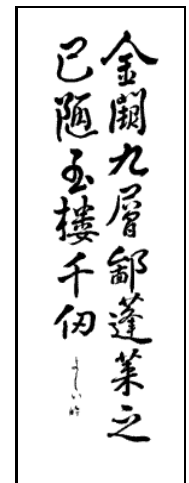 金闕九層鄙蓬莱之
已陋玉樓千仞